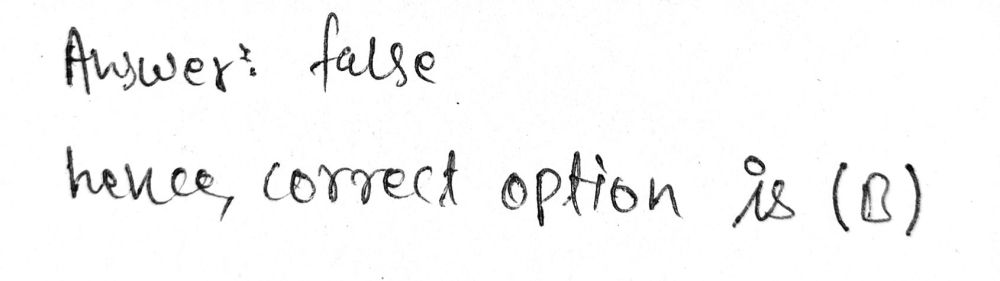 Answer: false
hence, correct option is (B)